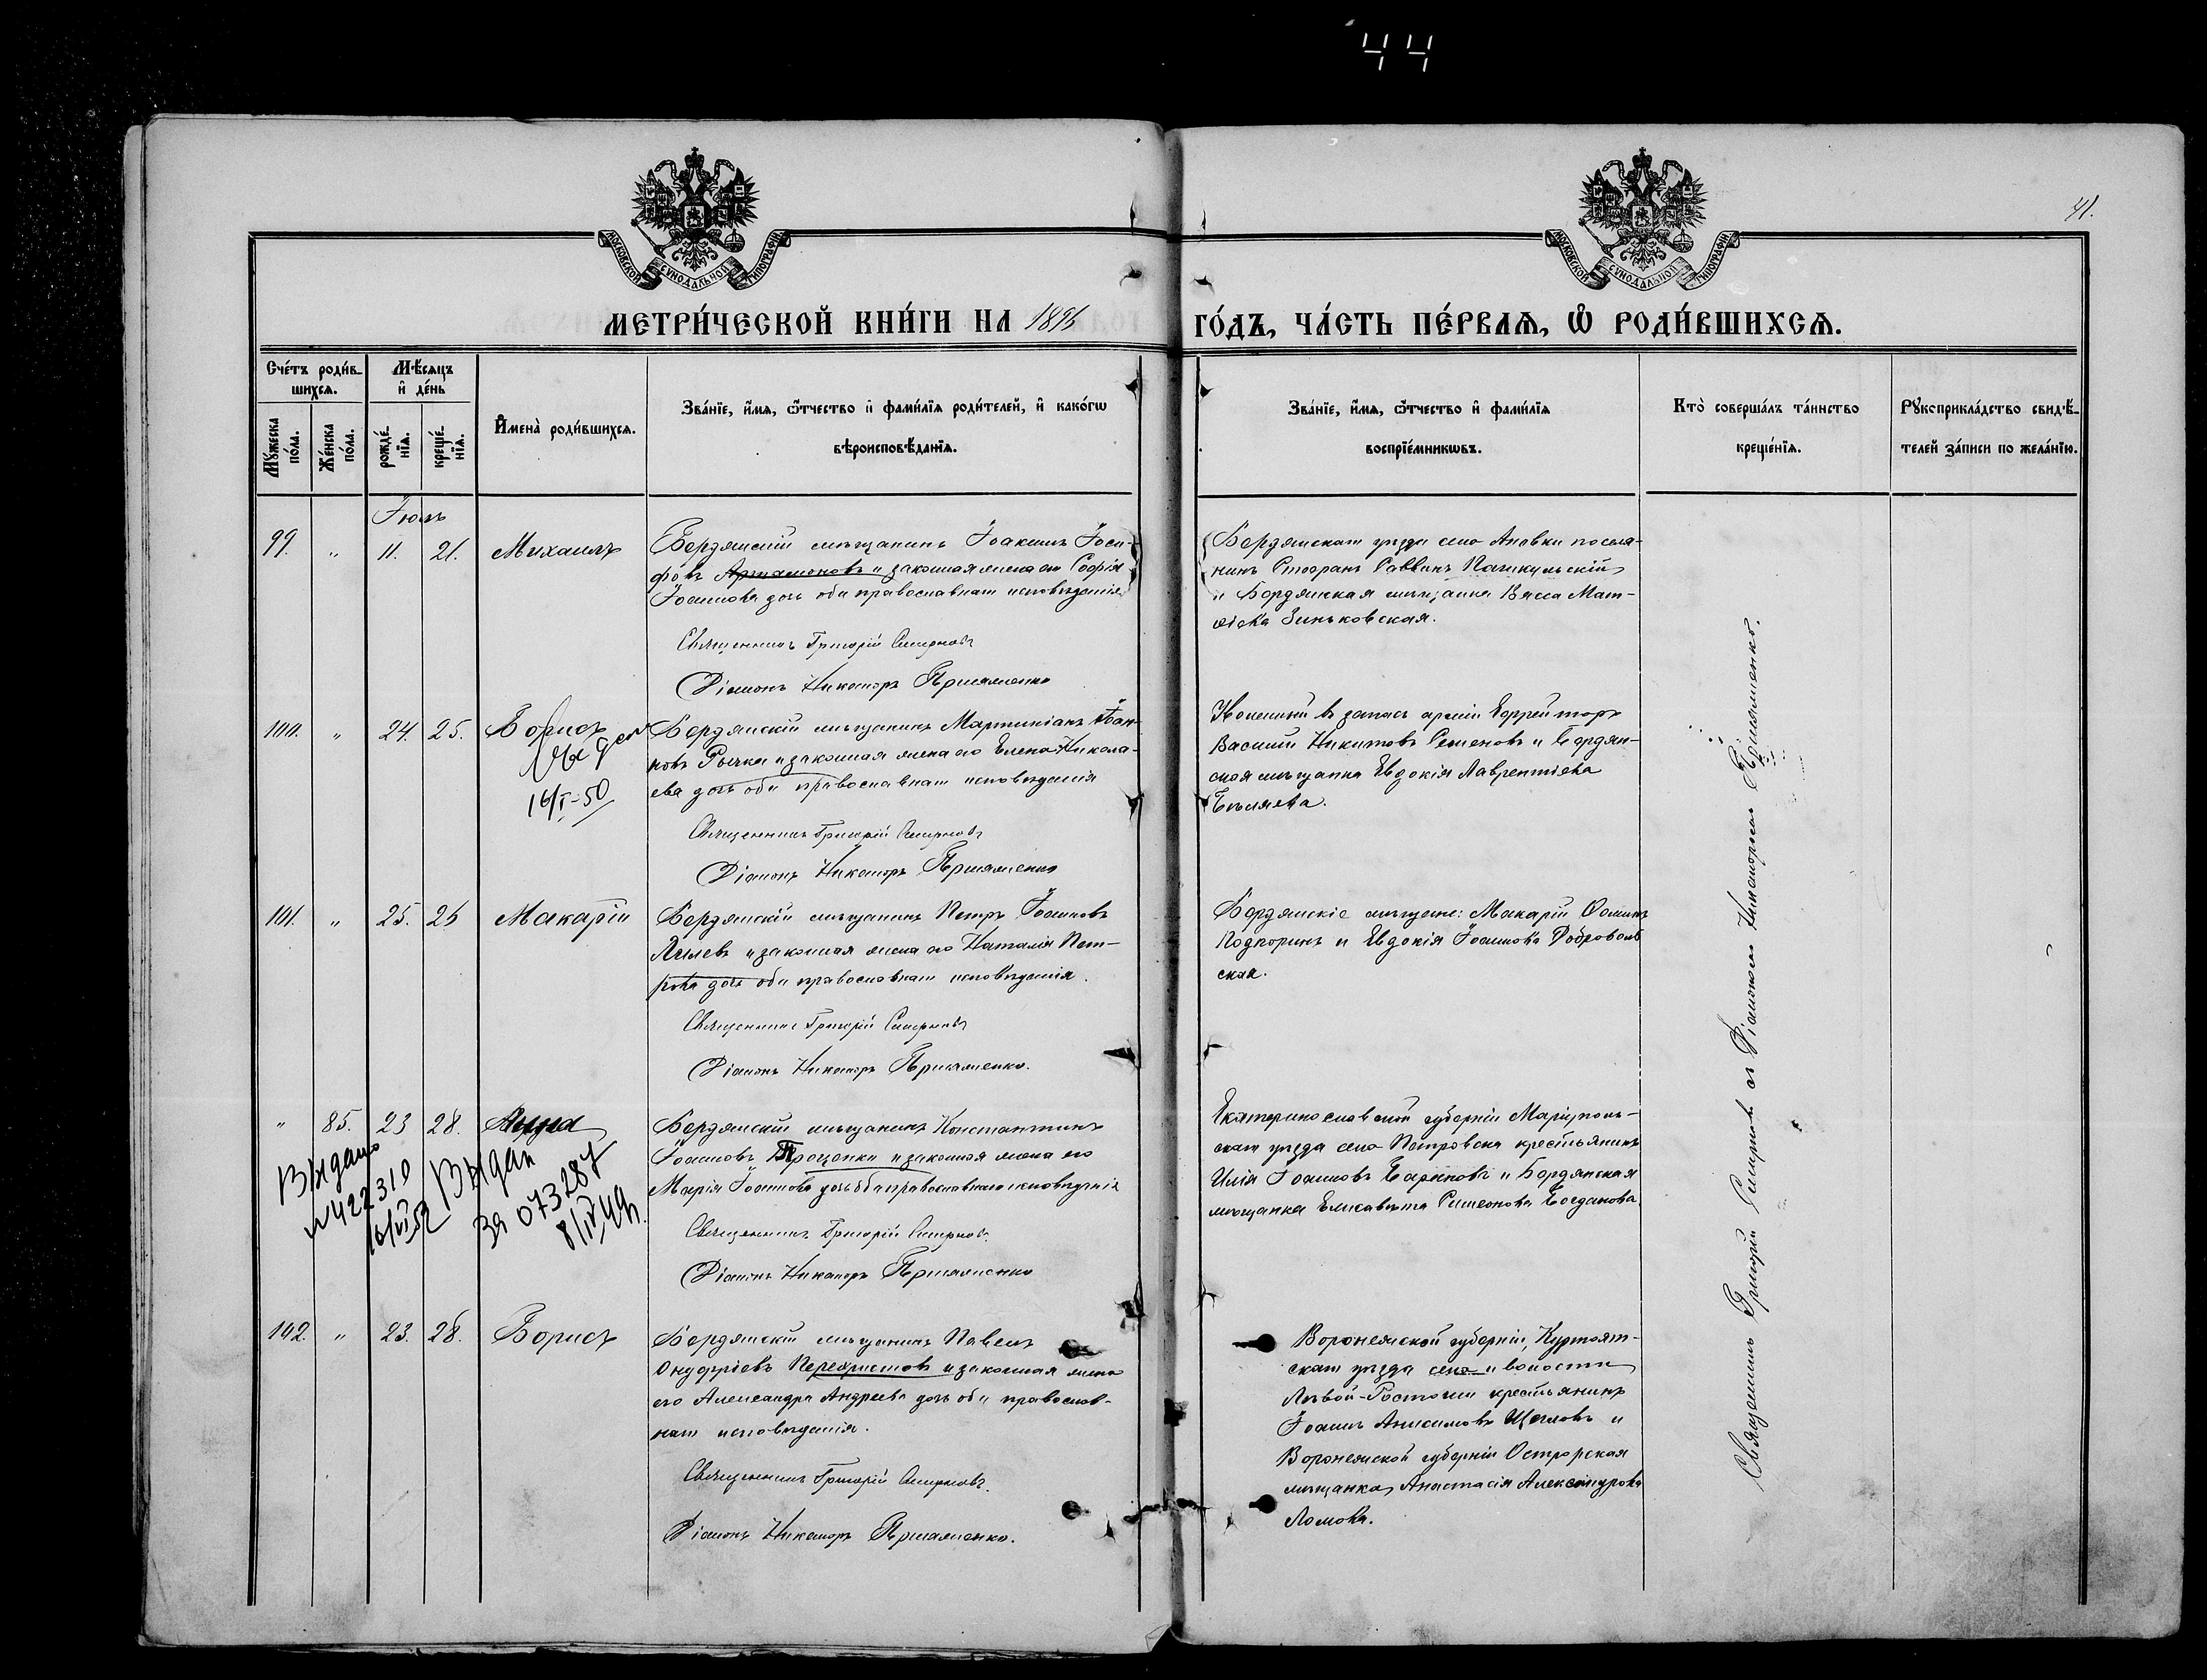 44
41.
МОСКОВСКОЙ СУНОДАЛЬНОЙ ТИПОГРАФІИ
МОСКОВСКОЙ СУНОДАЛЬНОЙ ТИПОГРАФІИ
МЕТРИ́ЧЕСКОЙ КНИ́ГИ НА 1896 ГО́ДЪ, ЧА́СТЬ ПЕ́РВАѦ, Ѽ РОДИ́ВШИХСѦ.
Сче́тъ роди́в-
шихсѧ.
Мꙋ́жеска по́ла.
Же́нска по́ла.
Мѣ́сѧцъ
и҆ де́нь
рожде́-
нїѧ.
креще́-
нїѧ.
И҆мена̀ роди́вшихсѧ.
Зва́нїе, и҆́мѧ, ѻ҆́тчество и҆ фами́лїѧ роди́телей, и҆ како́гѡ
вѣроисповѣ́данїѧ.
Зва́нїе, и҆́мѧ, ѻ҆́тчество и҆ фами́лїѧ
воспрїе́мникѡвъ.
Кто̀ соверша́лъ та́инство
креще́нїѧ.
Рꙋкоприкла́дство свидѣ́-
телей за́писи по жела́нїю.
Іюль
99. " 11. 21. Михаилъ
Бердянскій мѣщанинъ Іоакимъ Іоси-
фовъ Артамоновъ и законная жена его Софія
Іоаннова дочь оба православнаго исповѣданія
Священникъ Григорій Смирновъ
Діаконъ Никаноръ
Бердянскаго уѣзда села Ановки поселя-
нинъ Стефанъ Саввинъ
и Бердянская мѣщанка Васса Мат-
ѳіева Зиньковская.
100. " 24. 25. Борисъ
16/I-50
Бердянскій мѣщанинъ Мартиніанъ Іоан-
новъ Рычка и законная жена его Елена Никола-
ева дочь оба православнаго исповѣданія
Священникъ Григорій Смирновъ
Діаконъ Никаноръ
Уволенный въ запасъ арміи Ефрейторъ
Василій Никитовъ Семеновъ и Бердян-
ская мѣщанка Евдокія Лаврентіева
Бѣляева.
101. " 25. 26 Макарій
Бердянскій мѣщанинъ Петръ Іоанновъ
и законная жена его Наталія Пет-
рова дочь оба православнаго исповѣданія.
Священникъ Григорій Смирновъ
Діаконъ Никаноръ
Бердянскіе мѣщане: Макарій Ѳоминъ
Подпоринъ и Евдокія Іоаннова Доброволь
ская.
" 85. 23 28. Анна
Выдано
№422310
16/VI 52
Выдан
За 073287
8/IV 49г.
Бердянскій мѣщанинъ Константинъ
Іоанновъ Проценко и законная жена его
Марія Іоаннова дочь оба православнаго исповѣданія
Священникъ Григорій Смирновъ.
Діаконъ Никаноръ
Екатеринославской губерніи Маріуполь-
скаго уѣзда села Петровска крестьянинъ
Илія Іоанновъ Бариновъ и Бердянская
мѣщанка Елисавета Симеонова Богданова.
102. " 23. 28. Борисъ
Бердянскій мѣщанинъ Павелъ
Онуфріевъ Перехристовъ и законная жена
его Александра Андреева дочь оба православ-
наго исповѣданія.
Священникъ Григорій Смирновъ.
Діаконъ Никаноръ
Воронежской губерніи,
скаго уѣзда села и волости
Лѣвой-Россоши крестьянинъ
Іоаннъ Анисимовъ Щегловъ и
Воронежской губерніи
мѣщанка Анастасія Александрова
Ломова.
Священникъ Григорій Смирновъ съ Діакономъ Никаноромъ